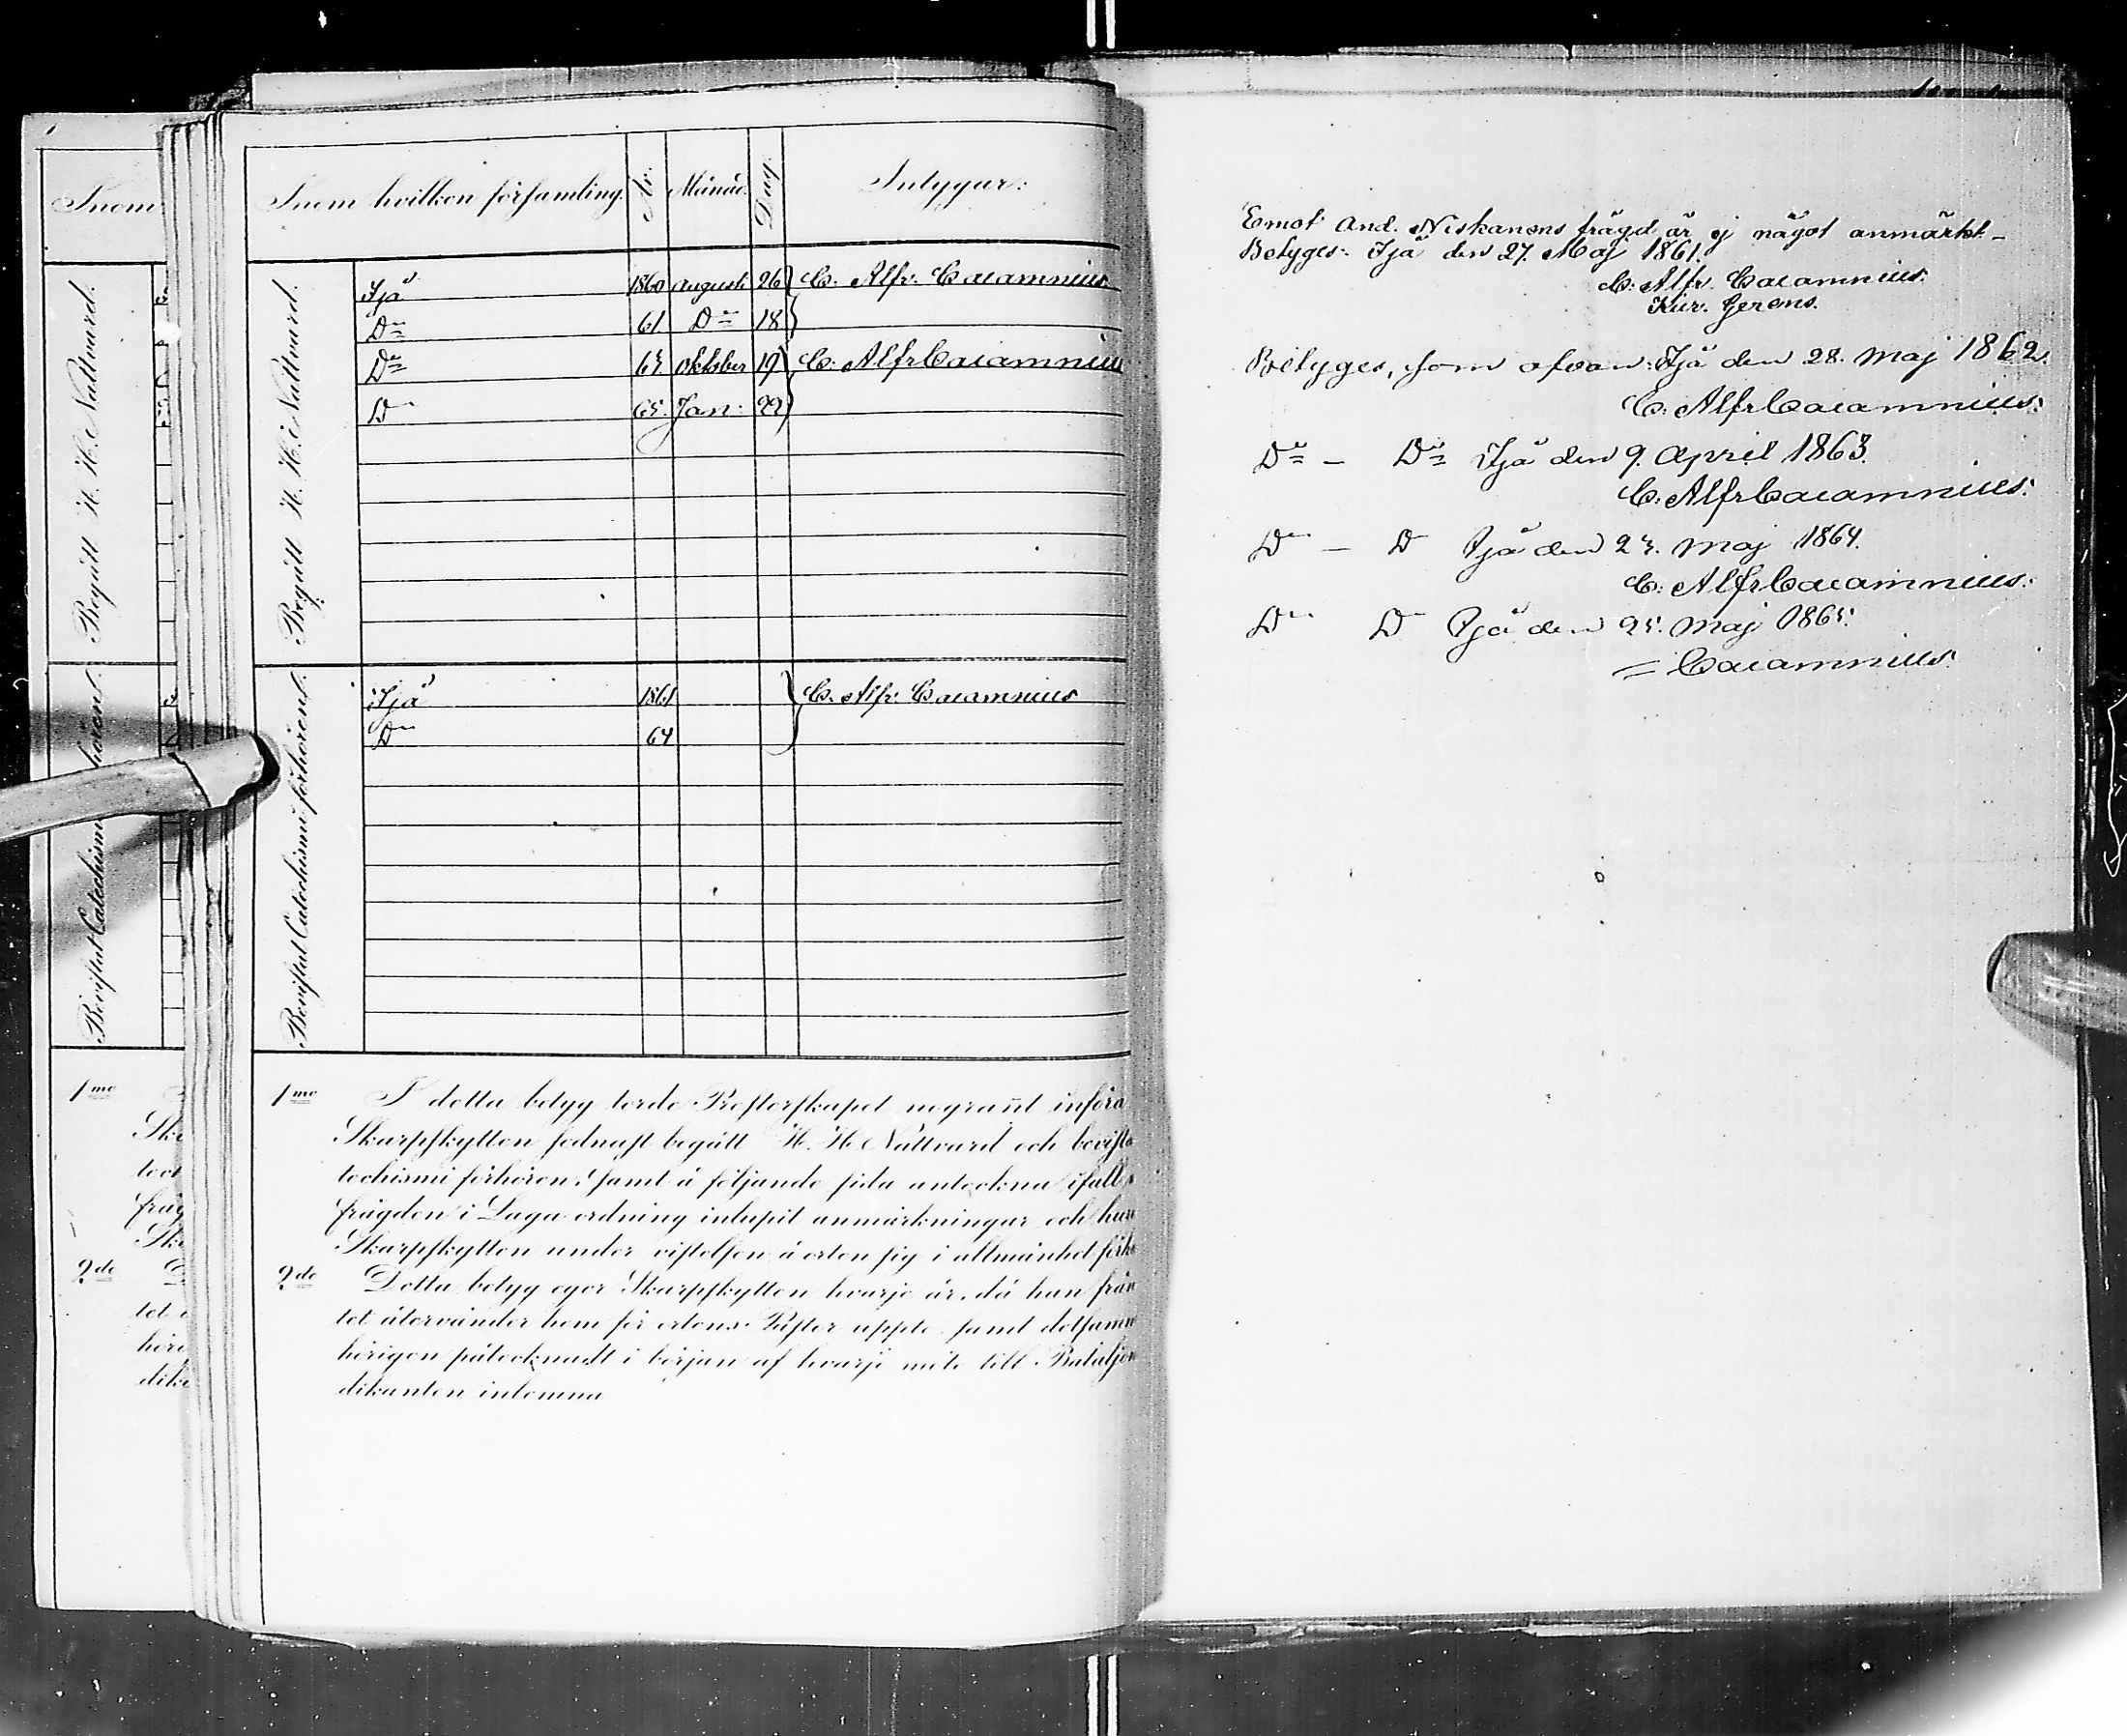 Inom
Begått H. H. Nattvard.
Bevistat Catechismi
1mo
Ska
fråg
Ska
2do
tet
höri
dika
Inom hvilken församling.
År.
Månad.
Dag.
Intygar:
Begått H. H. Nattvard.
Ijå 1860 Augusti 26 C. Alfr: Cacamnius
Do 61 Do 18
Do 63 Oktober 19 C: Alfr Cacamnius
Do 65. Jan: 22
Bevistat Catechismi förhören.
Ijå 1861 C. Alfr: Cacamnius
Do 64
1mo I detta betyg torde Presterskapet nogrant införa
Skarpskytten sednast begått H. H. Nattvard och bevista
techismi förhören, samt å följande sida anteckna ifall
frägden i Laga ordning inlupit anmärkningar och huru
Skarpskytten under vistelsen å orten sig i allmänhet förh
2do Detta betyg eger Skarpskytten hvarje år, då han från
tet återvänder hem för ortens Pastor uppte samt detsamm
hörigen påtecknadt i början af hvarje möte till Bataljon
dikanten inlemna
Emot And. Niskanens frägd är ej något anmärkt –
Betyges: Ijå den 27. Maj 1861.
C: Alfr. Cacamnius.
Kur. Gerens.
Betyges, som ofvan: Ijå den 28. Maj 1862.
C: Alfr Cacamnius:
Do – Do Ijå den 9. April 1863.
C: Alfr Cacamnius:
Do – Do Ijå den 23. Maj 1864.
C: Alfr Cacamnius:
Do Do Ijå den 25. Maj 1865.
= Cacamnius.